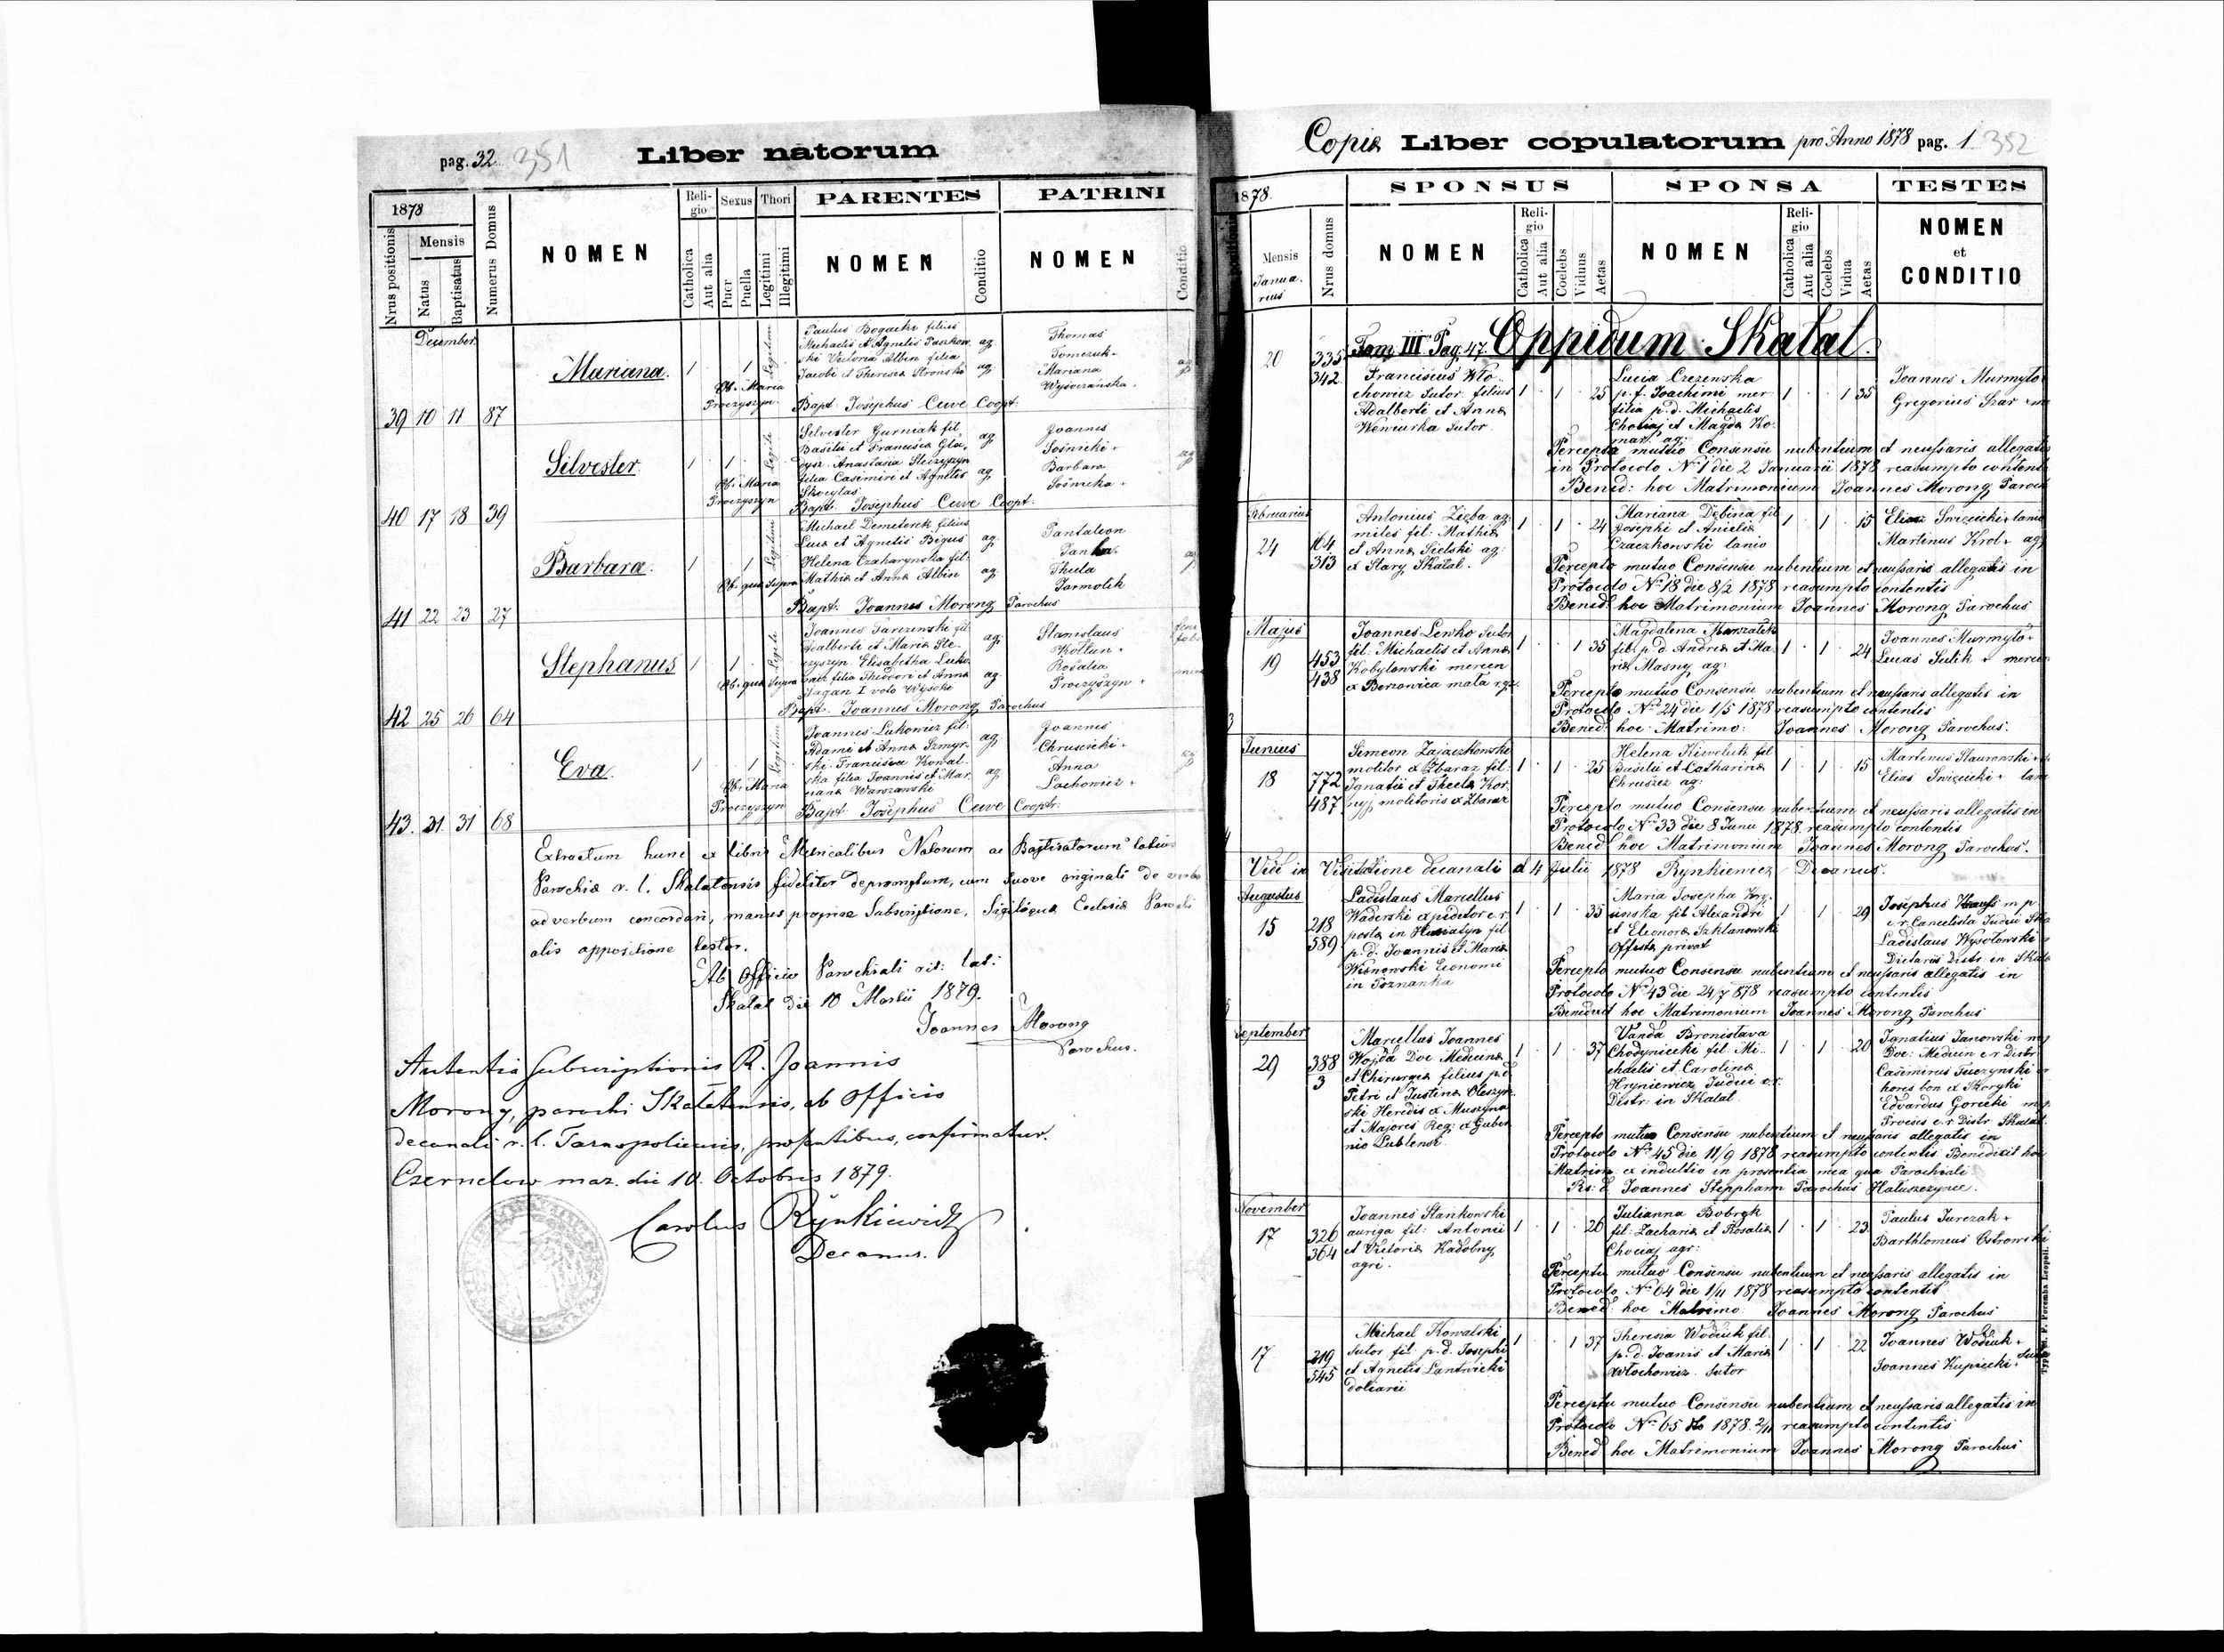 pag. 32 351
Liber natorum
1878
Nrus positionis
Mensis
Natus
Baptisatus
Numerus Domus
NOMEN
Reli-
gio
Catholica
Aut alia
Sexus
Puer
Puella
Thori
Legitimi
Illegitimi
PARENTES
NOMEN
Conditio
PATRINI
NOMEN
Conditio
December
39 10 11 87
Mariana
1 1 Legitimi
Ob. Maria
Proczyszyn
Paulus Bogacki filius
Michaelis & Agnetis Paszkow
ski Victoria Albin filia
Jacobi et Theresia Stronski
ag.
ag.
Bapt: Josephus Cuve Coopt:
Thomas
Tomczuk
Mariana
Wysoczańska
40 17 18 39
Silvester
1 1
Ob. Maria
Proczyszyn
Silvester Gurniak fil
Basilii et Francisca Głu
dysz. Anastasia Sleczyszyn
filia Casimiri et Agnetis
Skocylas
ag
ag
Bapt: Josephus Cuve Coopt:
Joannes
Sośnicki
Barbara
Sośnicka
41 22 23 27
Barbara
1 1
Ob. qua Supra
Michael Demetorek filius
Luca et Agnetis Bigus
Helena Czaharynska fil:
Mathia et Anna Albin
ag.
ag
Bapt: Joannes Morong Parochus
Pantaleon
Janka
Thecla
Jarmolik
42 25 26 64
Stephanus
1 1
Ob. qua Supra
Joannes Tarczenski fil
Adalberti et Maria Ste
czyszyn. Elisabetha Luko
wicz filia Theodori et Anna
Jagan I voto Wysocki
ag.
ag.
Bapt: Joannes Morong Parochus
Stanislaus
Kołtun
Rosalia
Proczyszyn
43. 31. 31 68
Eva.
1 1
Ob. Maria
Proczyszyn
Joannes Lukowicz fil:
Adami et Anna Szmyr
ski. Francisca Kowal
ska filia Joannis et Mar
iana Warszawski
ag
ag
Bapt: Josephus Cuve Cooptr:
Joannes
Chruscicki
Anna
Lachowicz
Extractum hunc ex libris Metricalibus Natorum ac Baptisatorum latius
Parochia r. l. Skalatensis fideliter depromptum, cum suove originali de verbo
ad verbum concordari, manus propria Subscriptione, Sigilique Ecclesia Parochi
alis appositione testor.
Ab Officio Parochiali rit: lat:
Skalat die 10 Martii 1879.
Joannes Morong
Parochus.
Autentia Subscriptionis R. Joannis
Morong, parochi Skalatensis, ab Officio
decanali r. l. Tarnopoliensis, praesentibus, confirmatur.
Czernelow maz. die 10. Octobris 1879.
Carolus Rynkiewicz
Decanus.
Copia Liber copulatorum pro Anno 1878 pag. 1 352
1878.
Mensis
Janua-
rius
Nrus domus
SPONSUS
NOMEN
Reli-
gio
Catholica
Aut alia
Coelebs
Viduus
Aetas
SPONSA
NOMEN
Reli-
gio
Catholica
Aut alia
Coelebs
Vidua
Aetas
TESTES
NOMEN
et
CONDITIO
Tom III Pag. 47. Oppidum Skałat.
20 335
342
Franciscus Wło
chowicz Sutor filius
Adalberti et Anna
Wewiurka Sutor
1 1 25
Lucia Czezenska
p. f. Joachimi mer
filia p. d. Michaelis
Chociaj et Magda Ko
mar. ag:
1 1 35
Joannes Murmyło
Gregorius Szar
Percepta mutuo Consensu nubentium et neussaris allegatis
in Protocolo No 1 die 2 Januarii 1878 reasumpto contentis
Bened: hoc Matrimonium Joannes Morong Paroch
Februarius
24 164
313
Antonius Zięba ag:
miles fil: Mathia
et Anna Sielski ag:
ex Stary Skałat.
1 1 24
Mariana Dębina fil
Josephi et Aniela
Czaczkowski lanio
1 1 15
Elias Swizicki lanio
Martinus Krol ag
Percepto mutuo Consensu nubentium et neussaris allegatis in
Protocolo No 18 die 8/2 1878 reasumpto contentis
Bened: hoc Matrimonium Joannes Morong Parochus
Majus
19 453
438
Joannes Lewko Sutor
fil: Michaelis et Anna
Kobylowski mercen
ex Borzowica mała
1 1 35
Magdalena Marszałek
fil: p. d. Andrea et Ma
ria Masny ag:
1 1 24
Joannes Murmyło
Lucas Sulik mercen
Percepto mutuo Consensu nubentium et neussaris allegatis in
Protocolo No 24 die 1/5 1878 reasumpto contentis
Bened: hoc Matrimo: Joannes Morong Parochus.
Junius
18 772
487
Simeon Zajaczkowski
molitor ex Zbaraz fil:
Ignatii et Thecla Kor
nyj molitoris ex Zbaraz
1 1 25
Helena Kiwoluk fil
Basilii et Catharina
Chruszcz ag:
1 1 15
Martinus Staurowski
Elias Swizicki lan
Percepto mutuo Consensu nubentium et neussaris allegatis in
Protocolo No 33 die 8 Junii 1878 reasumpto contentis
Bened: hoc Matrimonium Joannes Morong Parochus.
Vidi in Visitatione decanali d 4 Julii 1878 Rynkiewicz Decanus.
Augustus
15 218
589
Ladislaus Marcellus
Waderski expeditor c. r.
posta in Husiatyn fil
p. d. Joannis et Maria
Wisnowski Economi
in Poznanka
1 1 35
Maria Josepha Kry
sinska fil Alexandri
et Eleonora Szklanowski
Offista privat
1 1 29
Josephus Krauss m. p.
c. r. Cancelista Judicii
Ladislaus Wysotowski
Dietaris Distr: in Skałat
Percepto mutuo Consensu nubentium et neussaris allegatis in
Protocolo No 43 die 24/7 878 reasumpto contentis
Benedixit hoc Matrimonium Joannes Morong Parochus
September
29 388
3
Marcellus Joannes
Wojda Doc Medicina
et Chirurgia filius p. d.
Petri et Justina Oleszyn
ski Heredis ex Muszyna
et Majores Reg: ex Guber
nio Lublensi
1 1 37
Vanda Bronisłava
Chodyniecki fil. Mi
chaelis et Carolina
Hryniewicz Judici c. r.
Distr: in Skałat
1 1 20
Ignatius Janowski
Doc: Medicin c r Distr
Casimirus Tuczynski
hores bon ex Skoryki
Edvardus Gorecki
c. r. Distr Skałat
Percepto mutuo Consensu nubentium et neussaris allegatis in
Protocolo No 45 die 11/9 1878 reasumpto contentis Benedixit hoc
Matrim. ex indultio in prosentia mea qua Parochiali
Joannes Stepphann Parochus Hałuszczynce.
November
17 326
364
Joannes Stankowski
auriga fil: Antonii
et Victoria Kadobny
agri.
1 1 26
Julianna Bobryk
fil: Zacharia et Rosalia
Chociaj agr:
1 1 23
Paulus Jurczak
Barthlomeus Ostrowski
Perceptu mutuo Consensu nubentium et neussaris allegatis in
Protocolo No 64 die 1/11 1878 reasumpto contentis
Bened: hoc Matrimo: Joannes Morong Parochus
17 219
545
Michael Kowalski
Sutor fil. p. d. Josephi
et Agnetis Lantwicki
doliarii
1 1 37
Theresia Wodiuk fil.
p. d. Joanis et Maria
Włochowicz. Sutor
1 1 22
Joannes Wodiuk
Joannes Kupiecki
Perceptu mutuo Consensu nubentium et neussaris allegatis in
Protocolo No 65 1878 2/11 reasumpto contentis
Bened hoc Matrimonium Joannes Morong Parochus
Typis M. F. Poremba Leopoli.